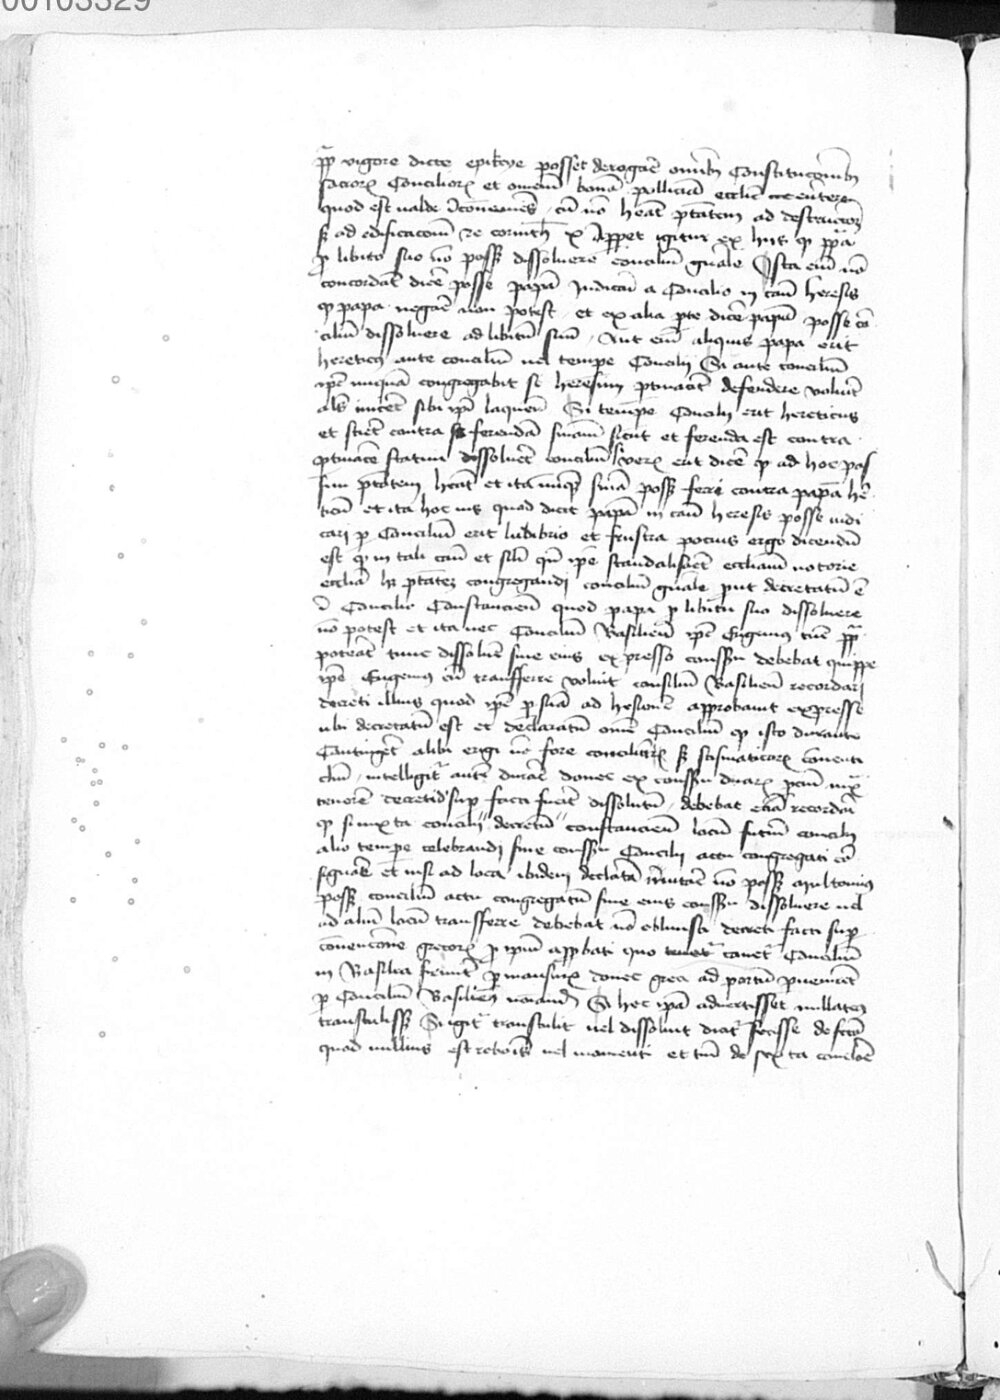 00103329
pp vigore dicte epikeye posset derogare omnibus Constitucionibus
sacrorum Conciliorum et omnem bonam polliciam ecclesie
quod est valde inconveniens cum non habeat potestatem ad destructionem
sed ad edificacionem 2e corinth x Apparet igitur ex hiis quod papa
pro libito suo non posset dissolvere concilium generale Ista enim non
concordant dicere posse papam Iudicari a Concilio in causa heresis
quod papa negare non potest et ex alia parte dicere papam posse con
cilium dissolvere ad libitum suum Aut enim aliquis papa erit
hereticus ante concilium vel tempore Concilii Si ante concilium
ipse nunquam congregabit si heresim pertinaciter defendere voluerit
alias iniceret sibi ipsi laqueum Si tempore Concilii erit hereticus
et sciret contra se ferendam sententiam sicut et ferenda est contra
pertinacem statim dissolveret concilium verum erit dicere quod ad hoc pos
sum potestatem habeat et ita nunquam sententia posset ferri contra papam here
ticum et ita hoc ius quod dicit papam in causa heresis posse iudi
cari per Concilium erit ludibrio et frustra pocius ergo dicendum
est quod in tali causa et simili quando ipse scandalisaret ecclesiam notorie
ecclesia habet potestatem congregandi concilium generale prout decretatum est
in Concilio Constanciensi quod papa pro libitu suo dissolvere
non potest et ita nec Concilium Basiliense ipse Eugenius tunc papa
poterat tunc dissolvere sine eius expresso consensu debebat quippe
ipse Eugenius cum transferre voluit consilium Basiliense recordari
decreti illius quod ipse per suam adhesionem approbavit expresse
ubi decretatum est et declaratum omne Concilium quod isto durante
Contingeret alibi erigi non fore concilium sed scismaticorum conventi
culum intelligitur autem durare donec ex consensu duarum parcium iuxta
tenorem decreti super facti fuerit dissolutum debebat eciam recordari
quod si iuxta concilii decretum constanciensis locum futuri concilii
alio tempore celebrandi sine consensu Concilii actu congregati con
signare et nisi ad loca ibidem declarata mutare non posset multominus
posset concilium actu congregatum sine eius consensu dissolvere vel
ad alium locum transferre debebat non oblivisci decreti facti super
convencione grecorum per ipsum approbati quo tenetur cavetur Concilium
in Basilea firmiter permansurum donec greci ad portum pervenirent
per Concilium Basiliense nominandum Si hec ipsa advertisset nullatenus
transtulisset Si igitur transtulit vel dissolvit dicatur fecisse de facto
quod nullius est roboris vel momenti et tantum de sexta conclusione